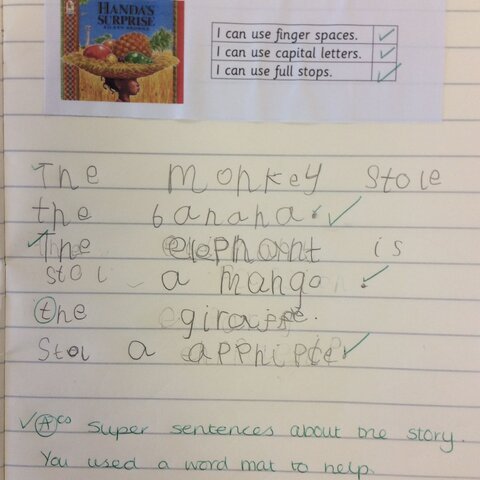 HANDA'S
SURPRISE
EILEEN BROWNE
I can use finger spaces. ✓
I can use capital letters. ✓
I can use full stops. ✓
The monkey stole
the banana. ✓
The elephant is
stol a mango. ✓
the giraffe.
Stol a apphiple ✓
✓ Acs Super sentences about the story.
You used a word mat to help.